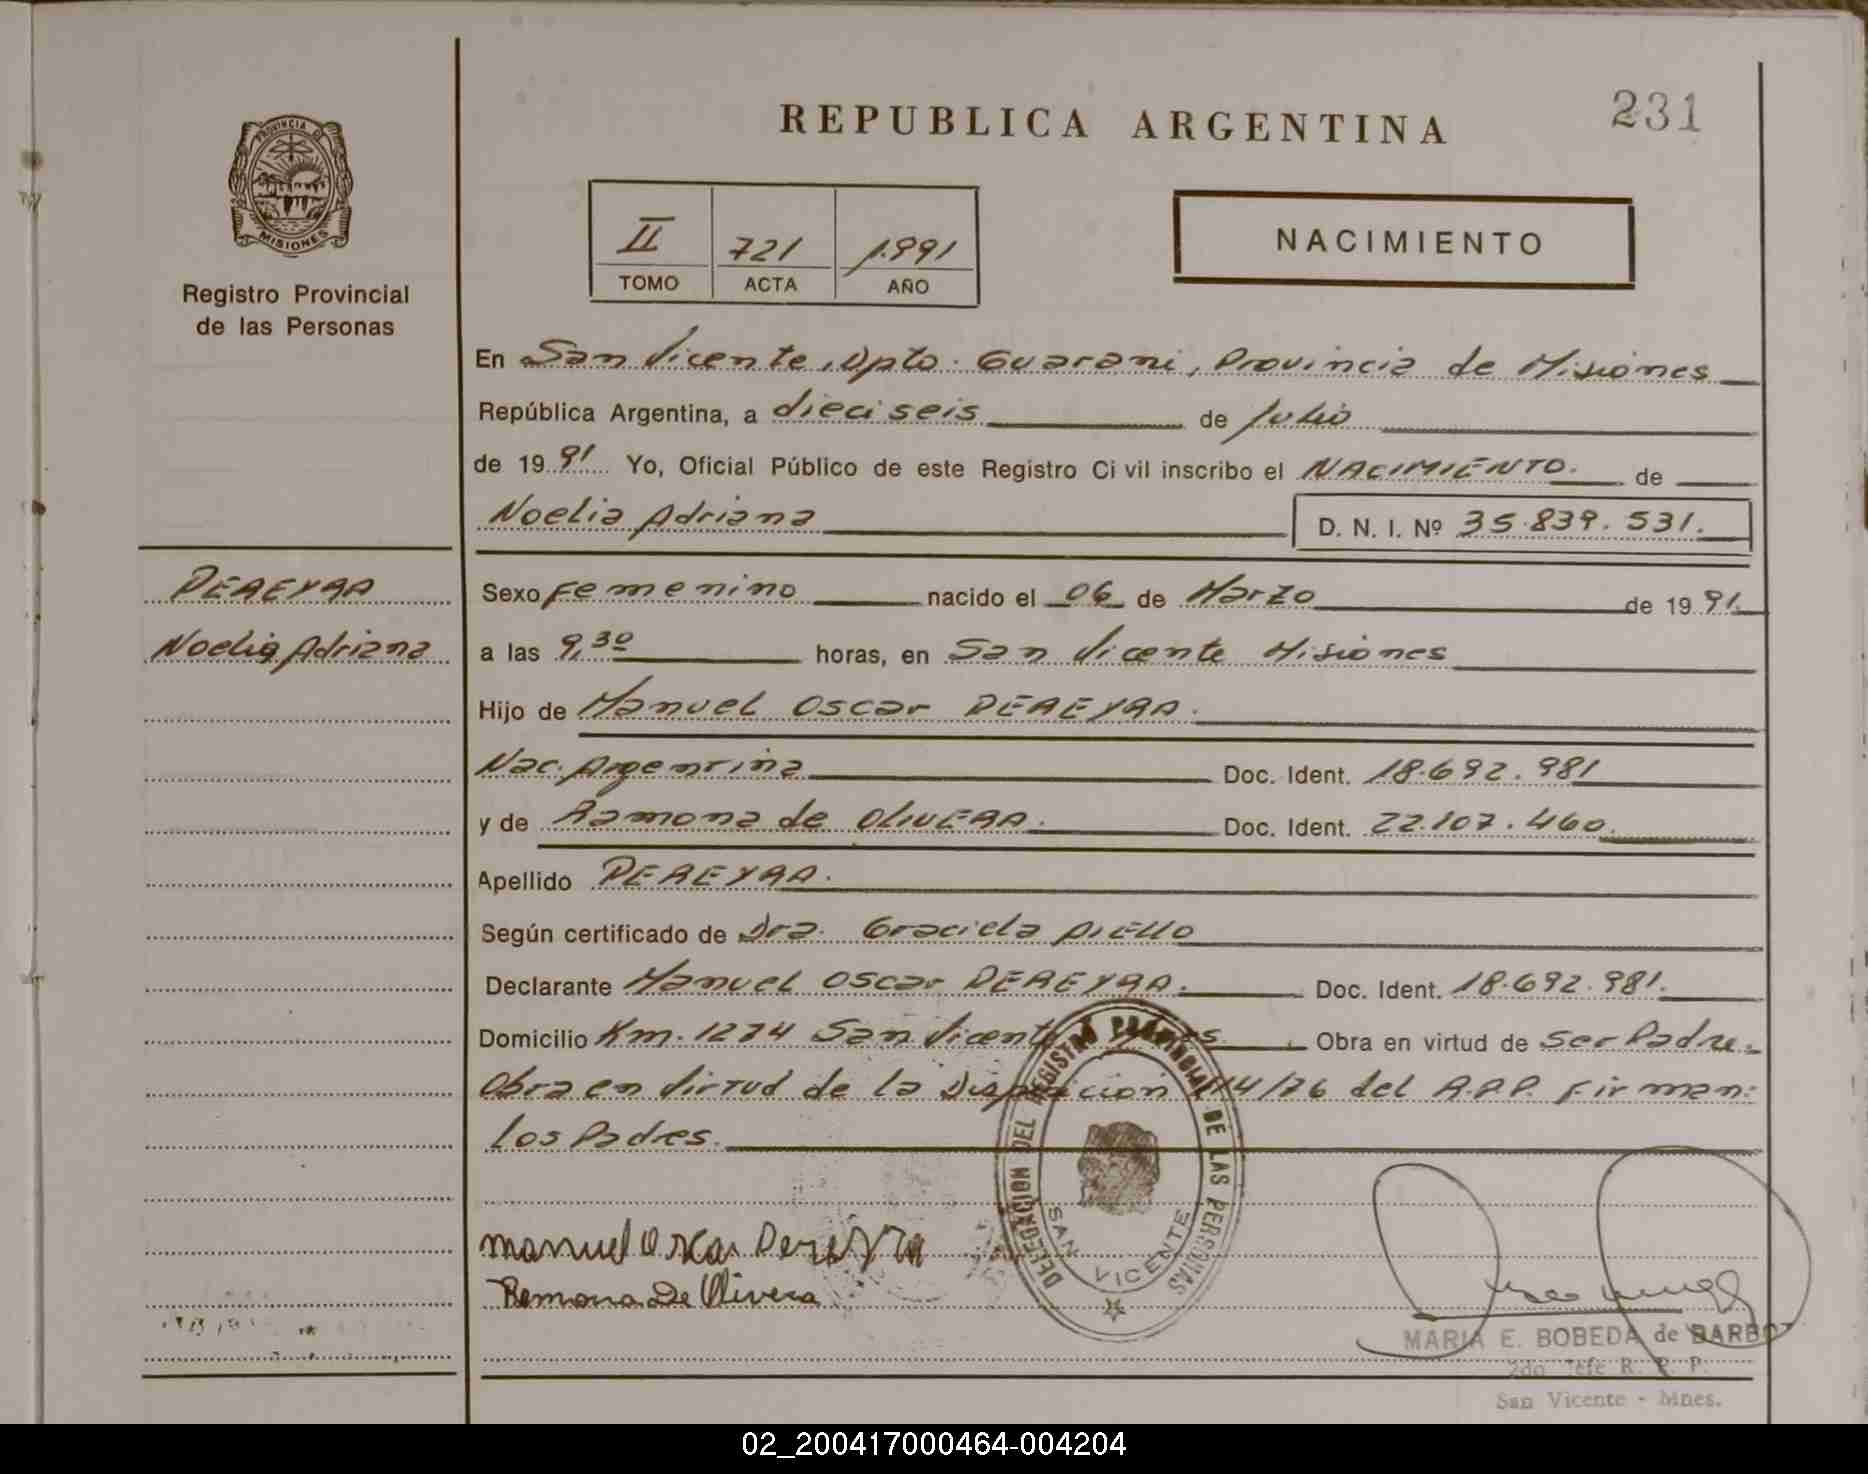 231
REPUBLICA ARGENTINA
PROVINCIA DE
MISIONES
Registro Provincial
de las Personas
II 721 1.991
TOMO ACTA AÑO
NACIMIENTO
En San Vicente, Dpto. Guarani, Provincia de Misiones
República Argentina, a dieciseis de Julio
de 19 91 Yo, Oficial Público de este Registro Civil inscribo el NACIMIENTO. de
Noelia Adriana D. N. I. Nº 35.839.531.
PEREYRA
Noelia Adriana
Sexo Femenino nacido el 06 de Marzo de 19 91.
a las 9,30 horas, en San Vicente Misiones
Hijo de Manuel Oscar PEREYRA.
Nac. Argentina Doc. Ident. 18.692.981
y de Ramona de OLIVERA. Doc. Ident. 22.107.460.
Apellido PEREYRA.
Según certificado de Dra. Graciela
Declarante Manuel Oscar PEREYRA. Doc. Ident. 18.692.981.
Domicilio Km. 1274 San Vicente Obra en virtud de ser Padre.
Obra en Virtud de la Disposicion 114/76 del R.P.P. Firman:
Los Padres.
DELEGACION DEL REGISTRO PROVINCIAL DE LAS PERSONAS
SAN VICENTE
Manuel Oscar Pereyra
Ramona De Olivera
MARIA E. BOBEDA de BARBOT
2do Jefe R. P. P.
San Vicente - Mnes.
02_200417000464-004204